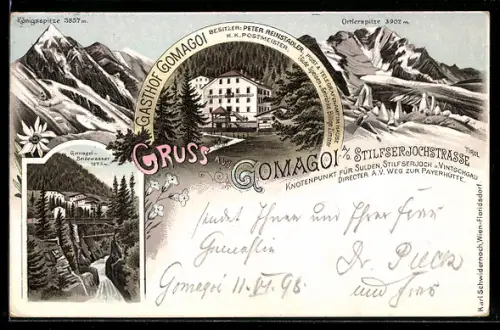 Königspitze 3857 m.
Ortlerspitze 3902 m.
GASTHOF GOMAGOI
BESITZER: PETER REINSTADLER,
K. K. POSTMEISTER.
POST & TELEGRAPHENAMT IM HAUSE
Gomagoi-
Beidewasser
1273 m.
GRUSS aus
GOMAGOI A/D STILFSERJOCHSTRASSE
TIROL
KNOTENPUNKT FÜR SULDEN, STILFSERJOCH u. VINTSCHGAU
DIRECTER A.V. WEG ZUR PAYERHÜTTE.
sendet Ihnen und Ihrer Frau
Gemahlin
Dr. Pieck
und Frau
Gomagoi 11. VI 98.
Karl Schwidernoch, Wien-Floridsdorf